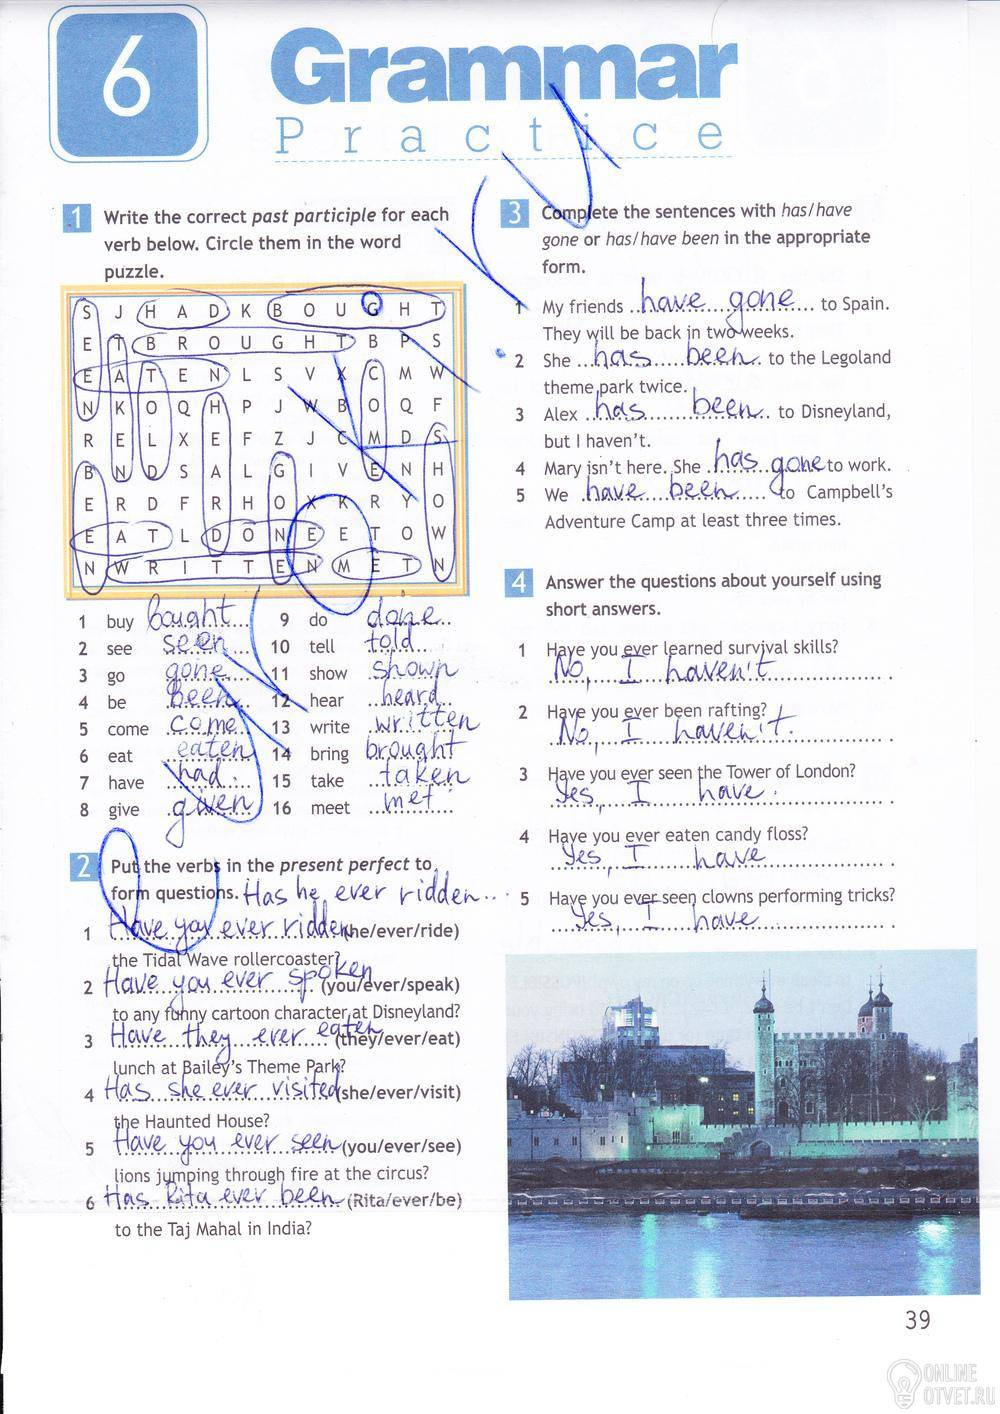 6
Grammar
Practice
1 Write the correct past participle for each
verb below. Circle them in the word
puzzle.
S J H A D K B O U G H T
E T B R O U G H T B P S
E A T E N L S V X C M W
N K O Q H P J W B O Q F
R E L X E F Z J C M D S
B N D S A L G I V E N H
E R D F R H O X K R Y O
E A T L D O N E E T O W
N W R I T T E N M E T N
1 buy bought
2 see seen
3 go gone
4 be been
5 come come
6 eat eaten
7 have had
8 give given
9 do done
10 tell told
11 show shown
12 hear heard
13 write written
14 bring brought
15 take taken
16 meet met
2 Put the verbs in the present perfect to
form questions. Has he ever ridden...
1 Have you ever ridden (he/ever/ride)
the Tidal Wave rollercoaster?
2 Have you ever spoken (you/ever/speak)
to any funny cartoon character at Disneyland?
3 Have they ever eaten (they/ever/eat)
lunch at Bailey's Theme Park?
4 Has she ever visited (she/ever/visit)
the Haunted House?
5 Have you ever seen (you/ever/see)
lions jumping through fire at the circus?
6 Has Rita ever been (Rita/ever/be)
to the Taj Mahal in India?
3 Complete the sentences with has/have
gone or has/have been in the appropriate
form.
1 My friends have gone to Spain.
They will be back in two weeks.
2 She has been to the Legoland
theme park twice.
3 Alex has been to Disneyland,
but I haven't.
4 Mary isn't here. She has gone to work.
5 We have been to Campbell's
Adventure Camp at least three times.
4 Answer the questions about yourself using
short answers.
1 Have you ever learned survival skills?
No, I haven't.
2 Have you ever been rafting?
No, I haven't.
3 Have you ever seen the Tower of London?
Yes, I have.
4 Have you ever eaten candy floss?
Yes, I have.
5 Have you ever seen clowns performing tricks?
Yes, I have.
39
ONLINE
OTVET.RU